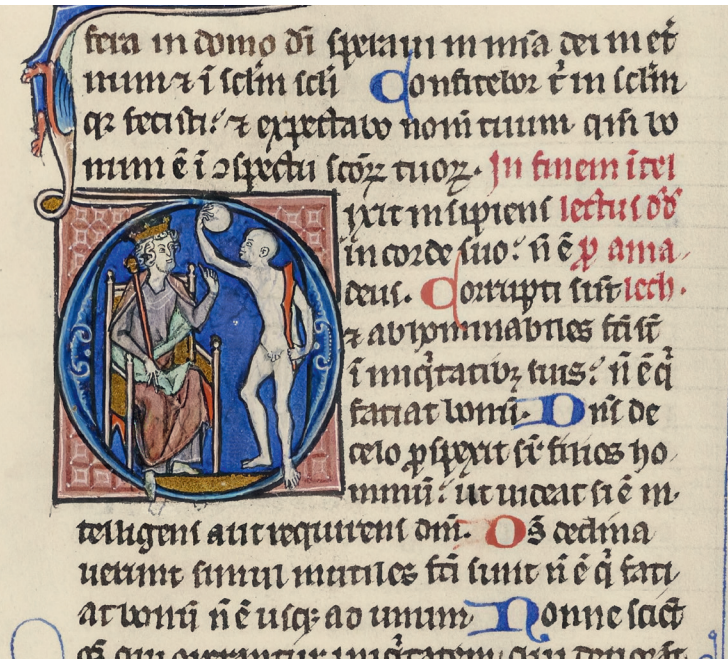 fera in domo dī speraui in mīa dei in et
num ⁊ ī sclm scli Confitebor t̄ in sclm
qꝛ fecisti: ⁊ expectabo nom̄ tuum qm̄ bo
num ē ī ↄspectu scōꝝ tuoꝝ. In finem ītel
ixit insipiens lectus dd̄
in corde suo: n̄ ē ꝓ ama
deus. Corrupti sūt lech.
⁊ abhominabiles fc̄i st̄
ī iniq̇tatibꝫ suis: n̄ ē q̇
faciat bonū. Dn̄s de
celo ꝓspexit sr̄ filios ho
minū: ut uideat si ē in
telligens aut requirens dm̄. Os̄ declina
uerunt simul inutiles fc̄i sunt n̄ ē q̇ faci
at bonū n̄ ē usqꝫ ad unum Nonne scict
os̄ qui operantur iniq̇tatem qui deuorāt